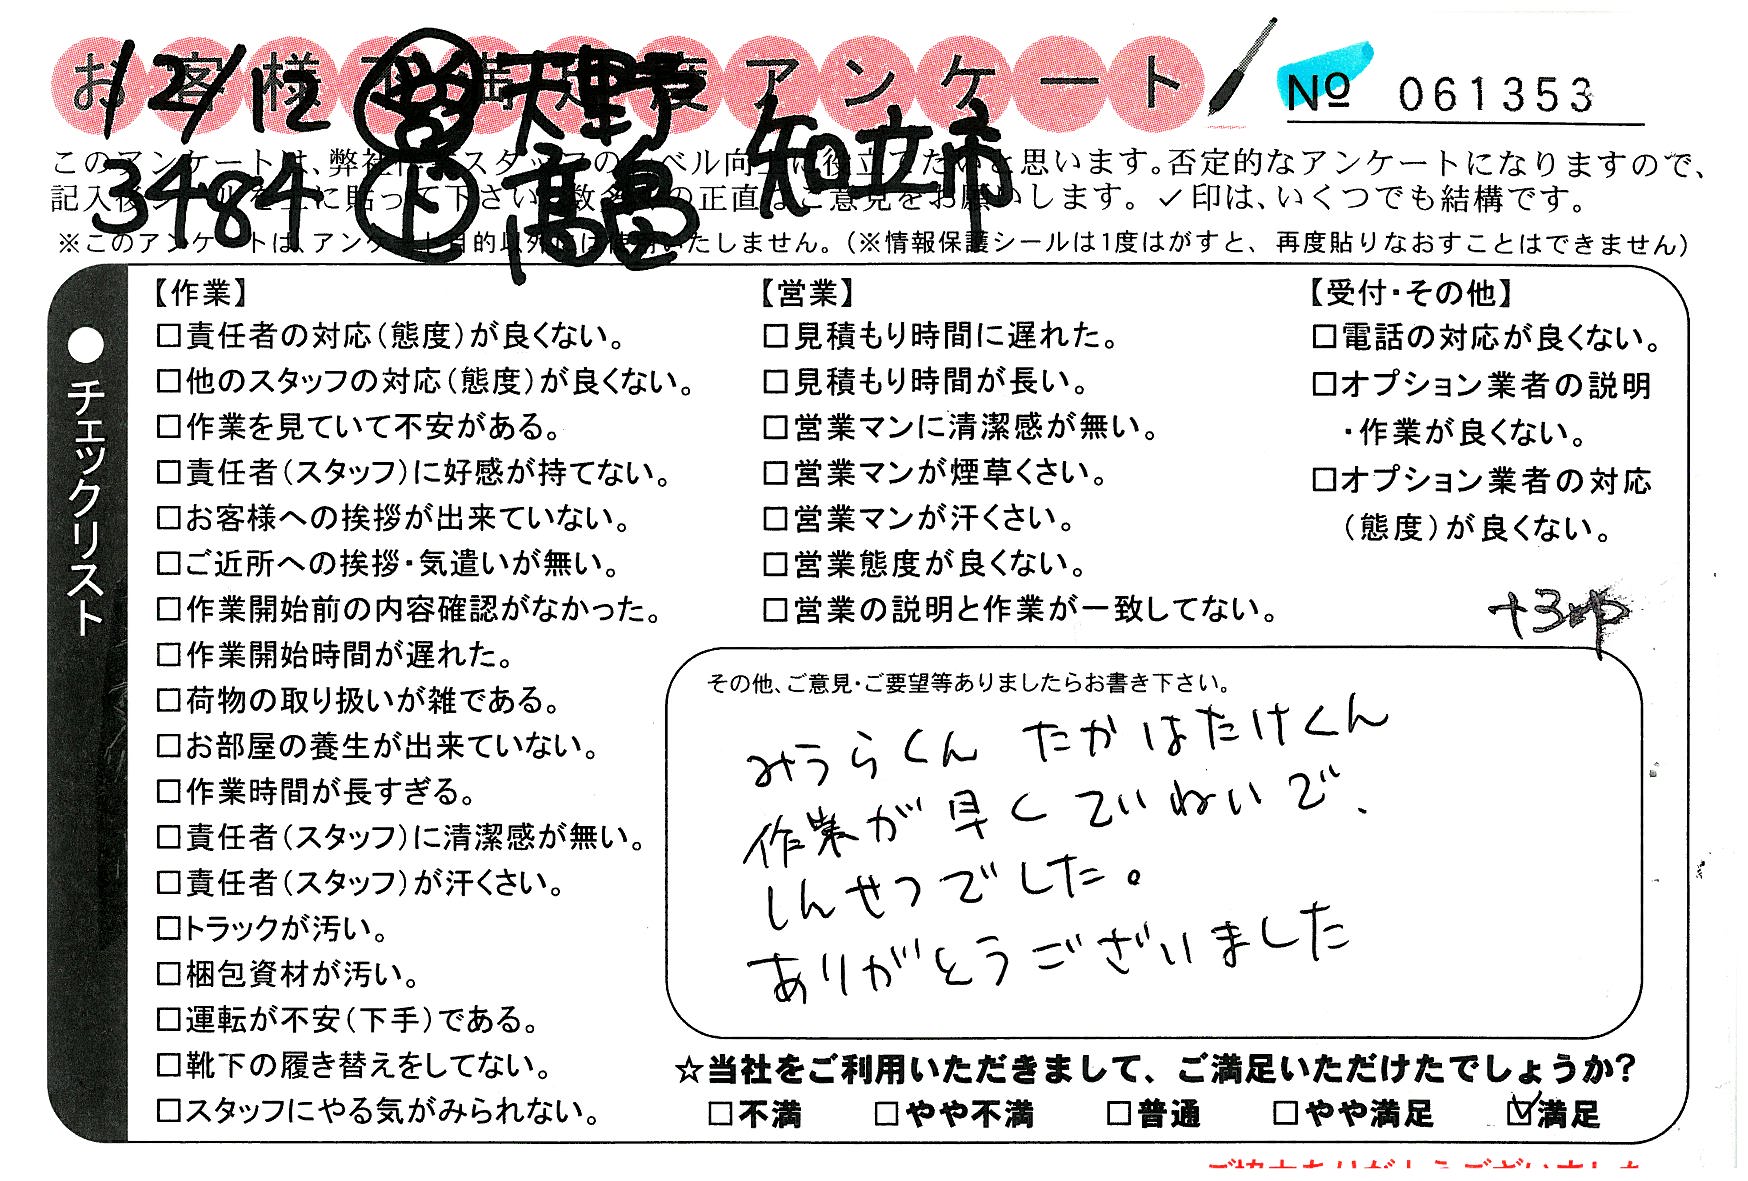 お客様不満足度アンケート
№ 061353
12/12 営 天野
3484 ド 髙畠 知立市
このアンケートは、弊社 スタッフの ベル向上に役立てたいと思います。否定的なアンケートになりますので、
記入後シールを上に貼って下さい。数名 の正直なご意見をお願いします。✓印は、いくつでも結構です。
※このアンケートは、アンケート目的以外には使用いたしません。（※情報保護シールは1度はがすと、再度貼りなおすことはできません）
●チェックリスト
【作業】
□責任者の対応（態度）が良くない。
□他のスタッフの対応（態度）が良くない。
□作業を見ていて不安がある。
□責任者（スタッフ）に好感が持てない。
□お客様への挨拶が出来ていない。
□ご近所への挨拶・気遣いが無い。
□作業開始前の内容確認がなかった。
□作業開始時間が遅れた。
□荷物の取り扱いが雑である。
□お部屋の養生が出来ていない。
□作業時間が長すぎる。
□責任者（スタッフ）に清潔感が無い。
□責任者（スタッフ）が汗くさい。
□トラックが汚い。
□梱包資材が汚い。
□運転が不安（下手）である。
□靴下の履き替えをしてない。
□スタッフにやる気がみられない。
【営業】
□見積もり時間に遅れた。
□見積もり時間が長い。
□営業マンに清潔感が無い。
□営業マンが煙草くさい。
□営業マンが汗くさい。
□営業態度が良くない。
□営業の説明と作業が一致してない。
【受付・その他】
□電話の対応が良くない。
□オプション業者の説明
・作業が良くない。
□オプション業者の対応
（態度）が良くない。
その他、ご意見・ご要望等ありましたらお書き下さい。
みうらくん たかはたけくん
作業が早くていねいで、
しんせつでした。
ありがとうございました
☆当社をご利用いただきまして、ご満足いただけたでしょうか？
□不満 □やや不満 □普通 □やや満足 ☑満足
ご協力ありがとうございました